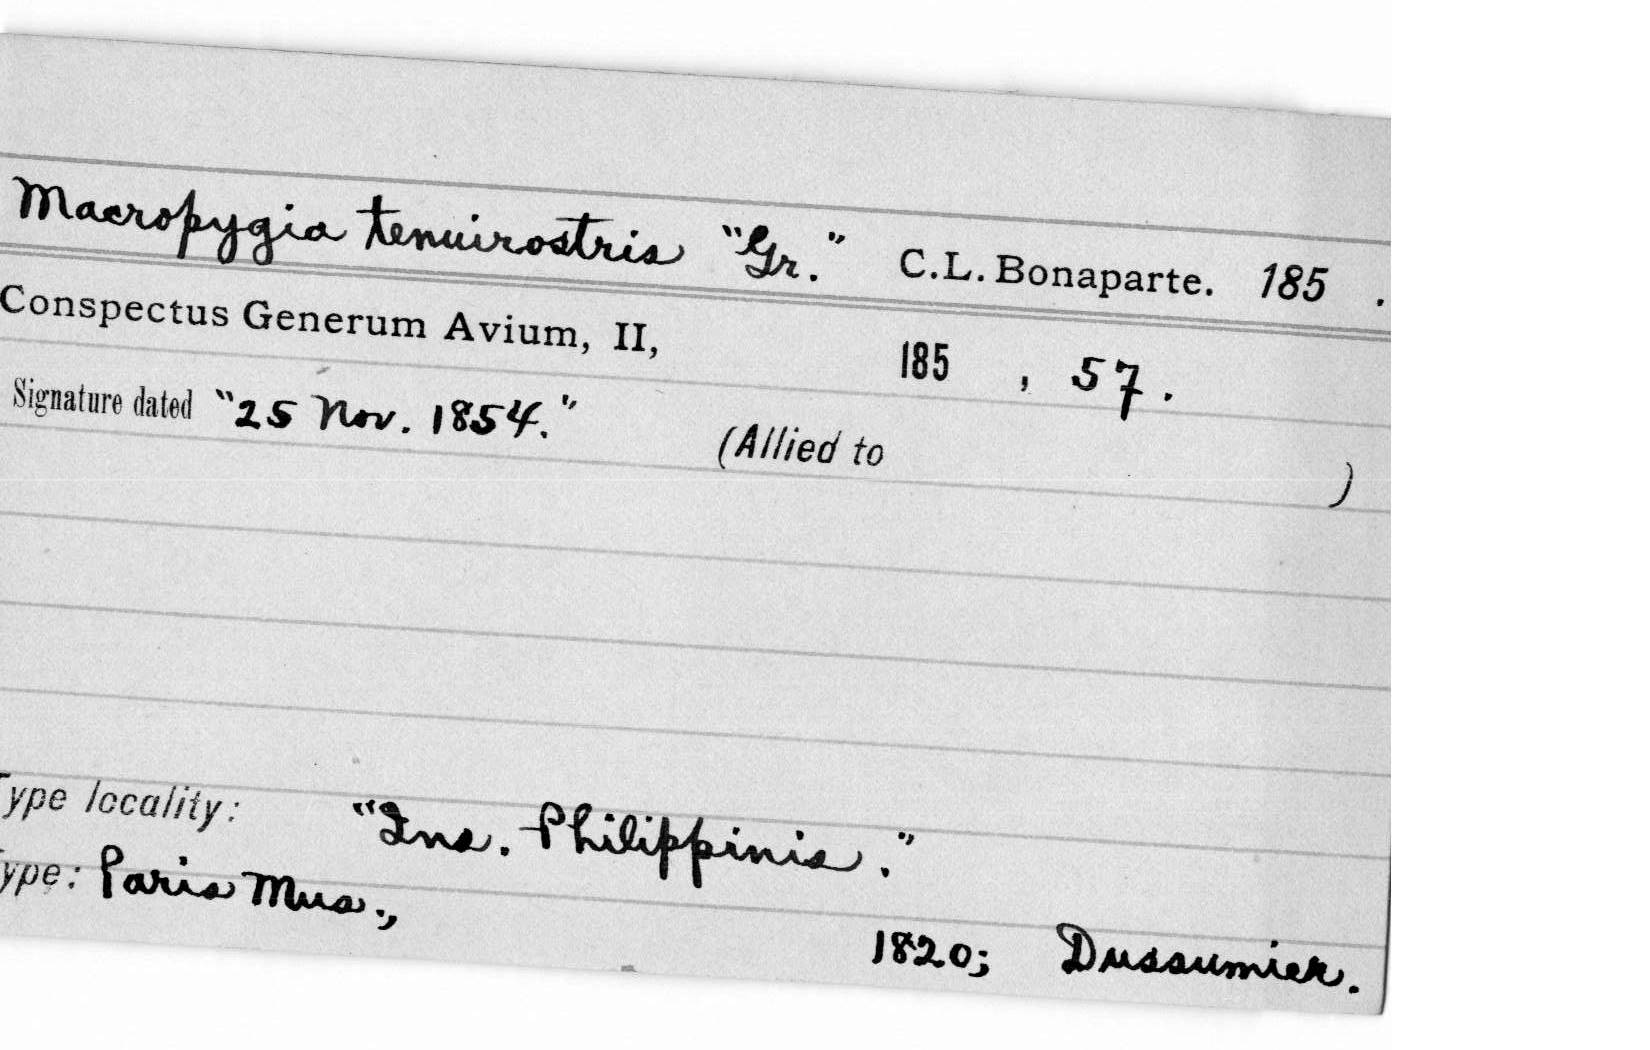 Macropygia tenuirostris "Gr." C.L. Bonaparte. 185 .
Conspectus Generum Avium, II, 185 , 57.
Signature dated "25 Nov. 1854." (Allied to )
Type locality: "Ins. Philippinis."
Type: Paris Mus., 1820; Dussumier.